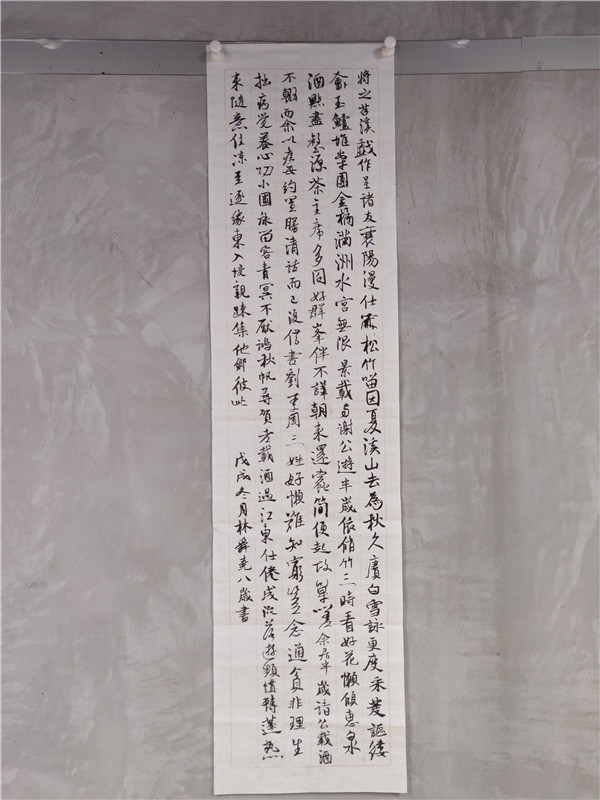 將之苕溪戲作呈諸友襄陽漫仕黻松竹留因夏溪山去為秋久賡白雪詠更度采菱謳縷
玉鱸堆案團金橘滿洲水宮無限景載与謝公遊半歲依脩竹三時看好花懶傾惠泉
酒點盡壑源茶主席多同好群峯伴不譁朝來還蠹簡便起故巢嗟余居半歲諸公載酒
不輟而余以疾每約置膳清話而已復借書劉李周三姓好懶難知窮豈念通貧非理生
拙病覺養心功小圃能留客青冥不厭鴻秋帆尋賀老載酒過江東仕倦成流落遊頻慣轉蓬熱
來隨意住涼至逐緣東入境親疎集他鄉彼此
戊戌冬月林舜堯八歲書